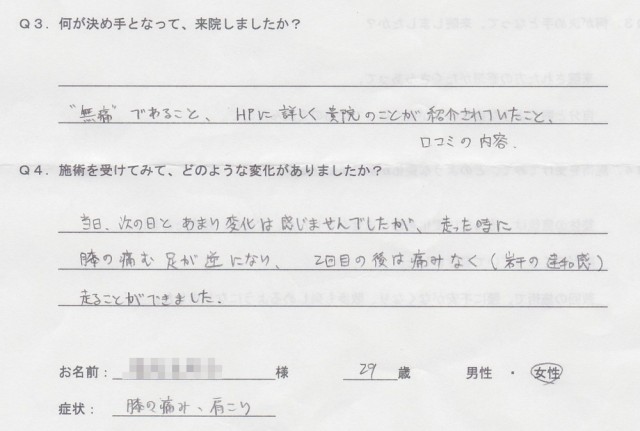 Q3. 何が決め手となって、来院しましたか?
"無痛"であること、HPに詳しく貴院のことが紹介されていたこと、
口コミの内容.
Q4. 施術を受けてみて、どのような変化がありましたか?
当日、次の日とあまり変化は感じませんでしたが、走った時に
膝の痛む足が逆になり、2回目の後は痛みなく(若干の違和感)
走ることができました.
お名前: 様 29歳 男性 ・ 女性
症状: 膝の痛み、肩こり